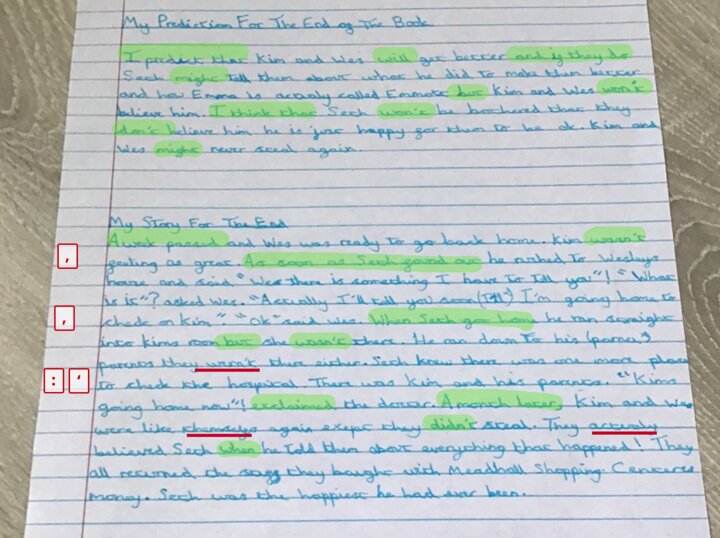 My Prediction For The End of The Book
I predict that Kim and Wes will get better and if they do
Seth might tell them about what he did to make them better
and how Emma is actualy called Emmott but Kim and Wes won't
believe him. I think that Seth won't be bothered that they
don't believe him he is just happy for them to be ok. Kim and
Wes might never steal again.
My Story For The End
A week passed and Wes was ready to go back home. Kim wasn't
, feeling as great. As soon as Seth found out he rushed to Wesleys
house and said "Wes there is something I have to tell you"! "What
is it"? asked Wes. "Actually I'll tell you soon I'm going home to
, check on Kim" "ok" said Wes. When Seth got home he ran straight
into Kims room but she wasn't there. He ran down to his
parents they wern't there either. Seth knew there was one more place
: ' to check the hospital. There was Kim and his parents. "Kims
going home now"! exclaimed the doctor. A month later Kim and Wes
were like themselvs again exept they didn't steal. They actualy
believed Seth when he told them about everything that happened! They
all returned the they bought with Meadhall Shopping Centeres
money. Seth was the happiest he had ever been.